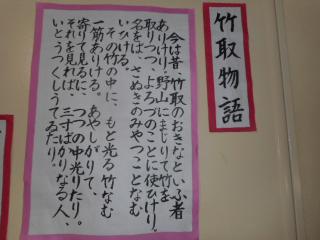 竹取物語
今は昔、竹取のおきなといふ者
ありけり。野山にまじりて竹を
取りつつ、よろづのことに使ひけり。
名をば、さぬきのみやつことなむ
いひける。
その竹の中に、もと光る竹なむ
一筋ありける。あやしがりて、
寄りて見るに、つつの中光りたり。
それを見れば、三寸ばかりなる人、
いとうつくしうてゐたり。